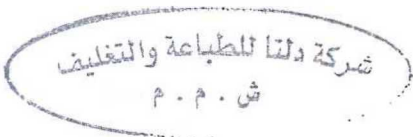 شركة دلتا للطباعة والتغليف
ش . م . م